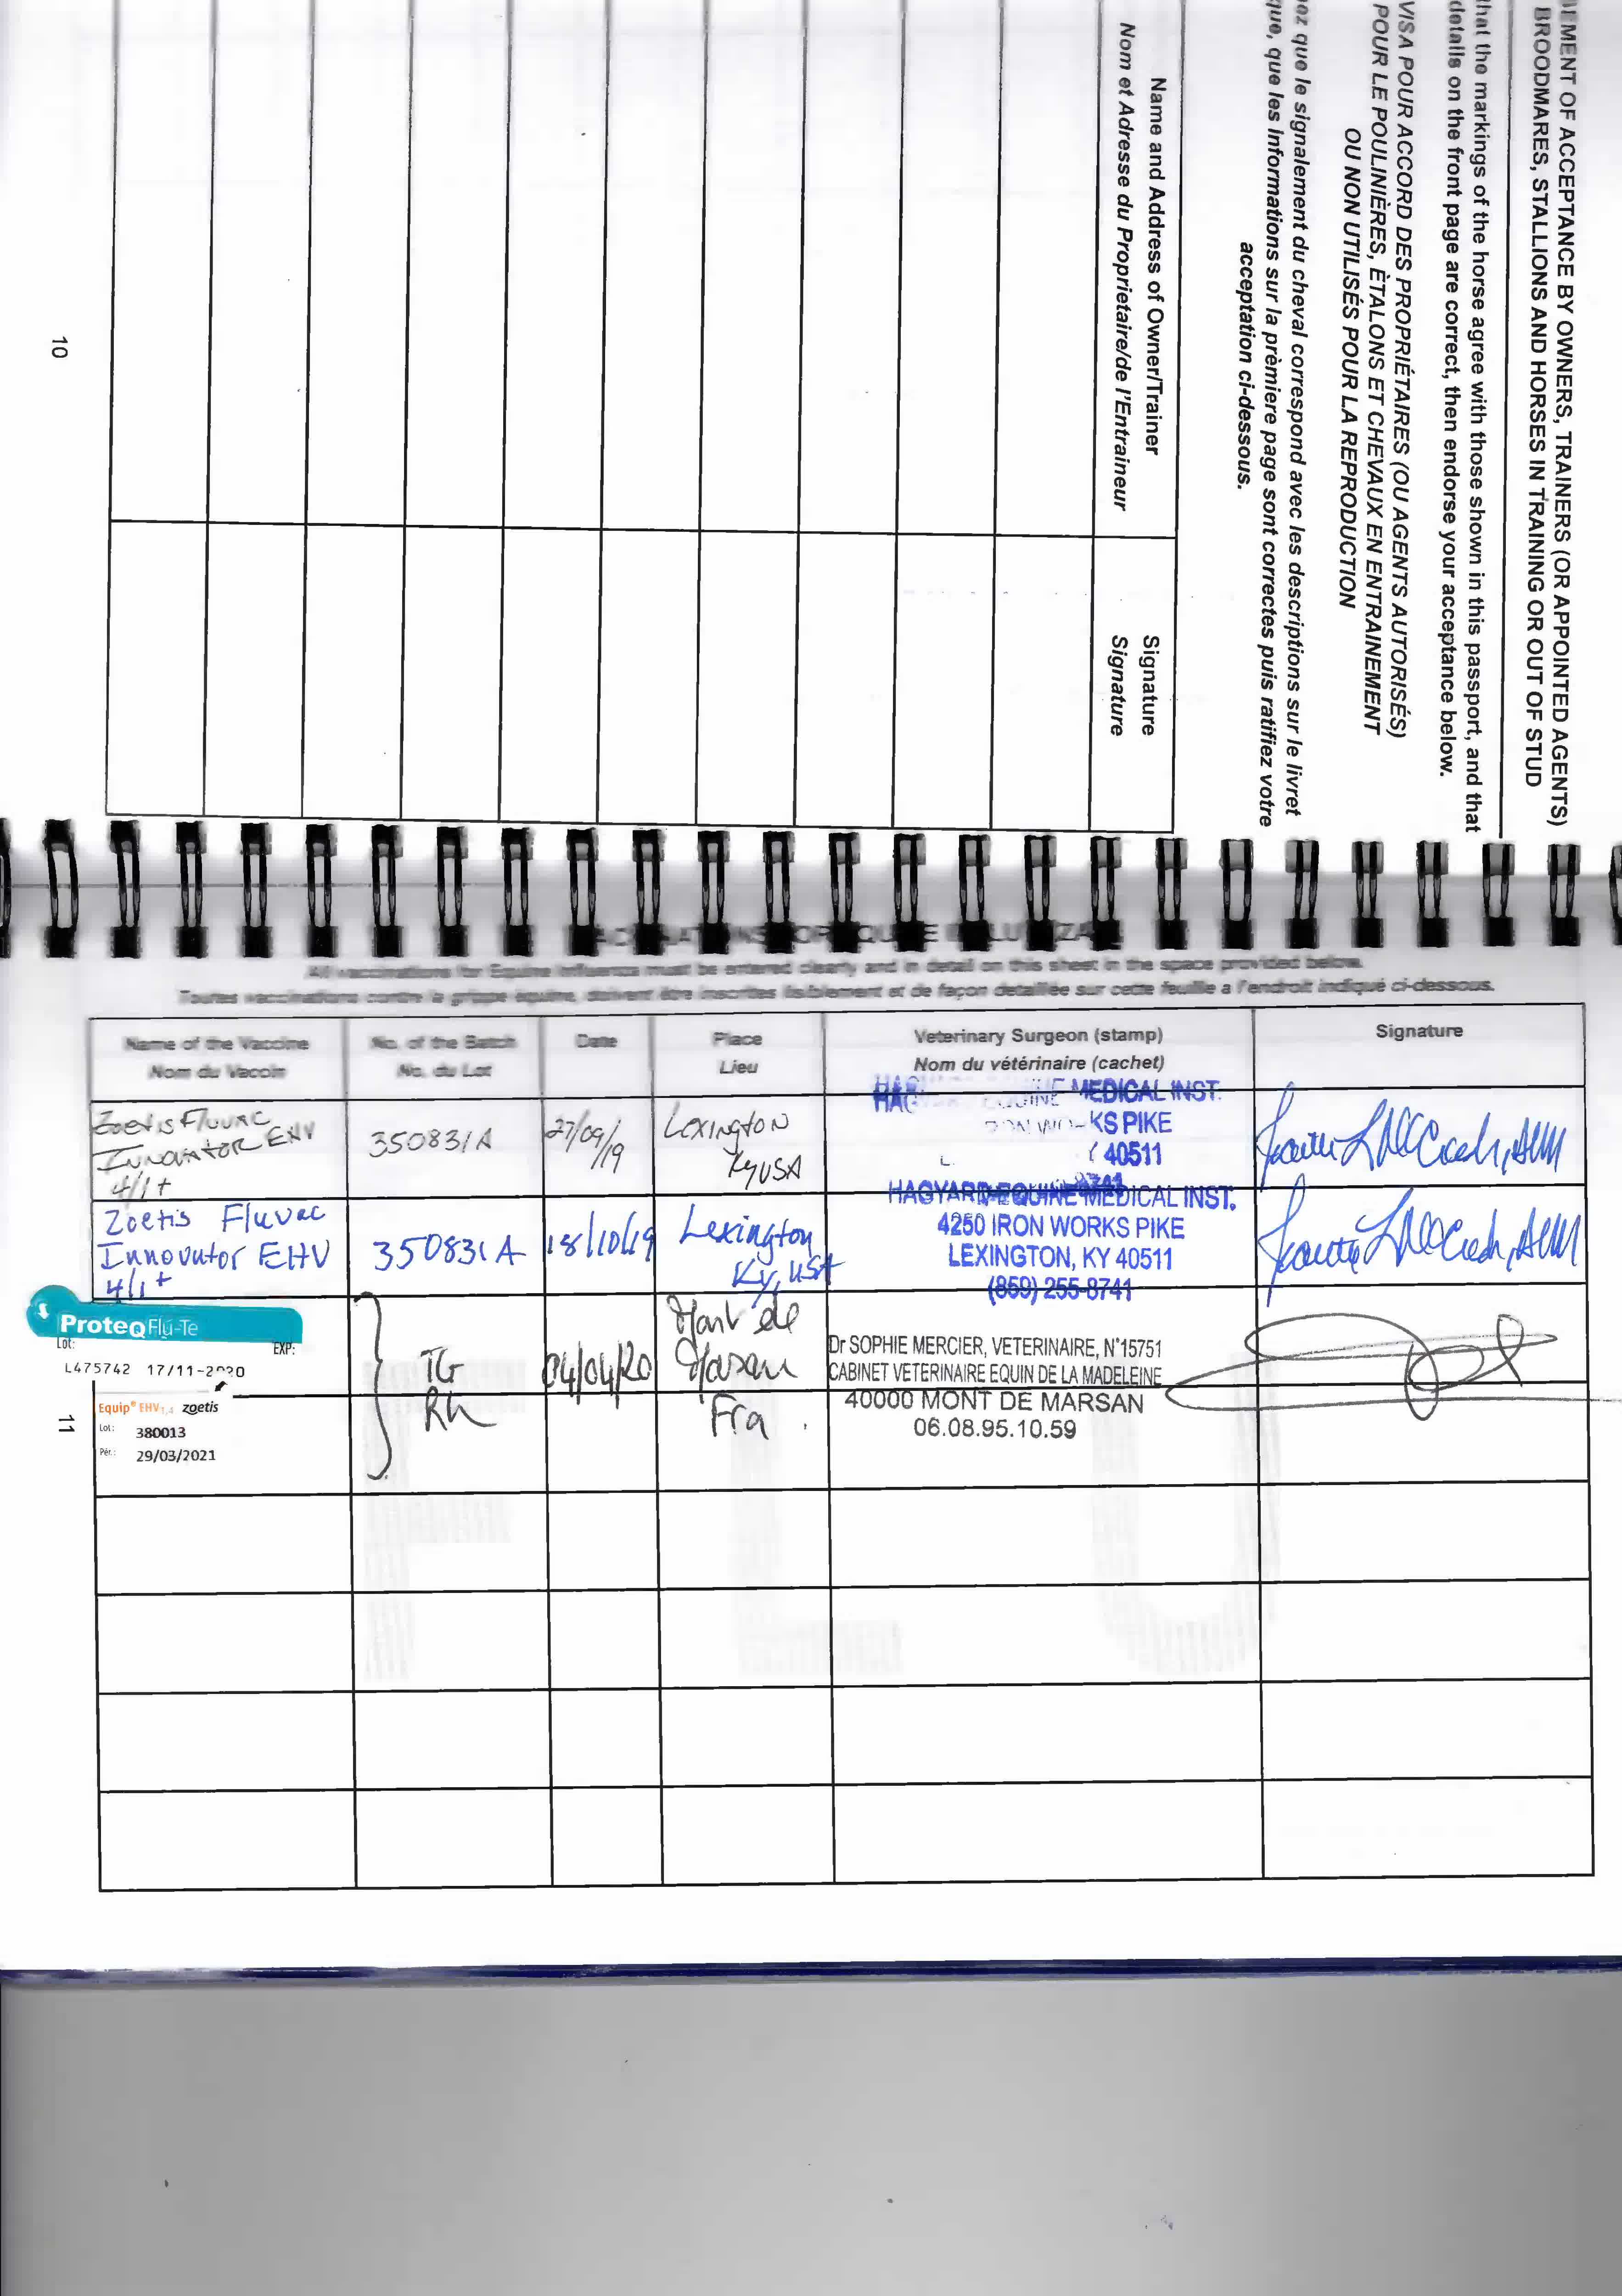 EMENT OF ACCEPTANCE BY OWNERS, TRAINERS (OR APPOINTED AGENTS)
BROODMARES, STALLIONS AND HORSES IN TRAINING OR OUT OF STUD
that the markings of the horse agree with those shown in this passport, and that
details on the front page are correct, then endorse your acceptance below.
VISA POUR ACCORD DES PROPRIÉTAIRES (OU AGENTS AUTORISÉS)
POUR LE POULINIÈRES, ÈTALONS ET CHEVAUX EN ENTRAINEMENT
OU NON UTILISÉS POUR LA REPRODUCTION
ez que le signalement du cheval correspond avec les descriptions sur le livret
que, que les informations sur la prèmiere page sont correctes puis ratifiez votre
acceptation ci-dessous.
Name and Address of Owner/Trainer Signature
Nom et Adresse du Proprietaire/de l'Entraineur Signature
10
All vaccinations for Equine Influenza must be entered clearly and in detail on this sheet in the space provided below.
Toutes vaccinations contre la grippe équine, doivent être inscrites lisiblement et de façon detaillée sur cette feuille a l'endroit indiqué ci-dessous.
Name of the Vaccine No. of the Batch Date Place Veterinary Surgeon (stamp) Signature
Nom du Vaccin No. du Lot Lieu Nom du vétérinaire (cachet)
Zoetis Fluvac
Innovator EHV
4/1+
350831A
27/09/19
Lexington
Ky USA
MEDICAL INST.
KS PIKE
40511
Zoetis Fluvac
Innovator EHV
4/1+
350831A
18/10/19
Lexington
Ky, USA
HAGYARD EQUINE MEDICAL INST.
4250 IRON WORKS PIKE
LEXINGTON, KY 40511
(859) 255-8741
ProteqFlu-Te
Lot: EXP:
L475742 17/11-2020
Equip® EHV1,4 zoetis
Lot: 380013
Pér.: 29/03/2021
TG
Rh
04/04/20
Mont de
Marsan
Fra
Dr SOPHIE MERCIER, VETERINAIRE, N°15751
CABINET VETERINAIRE EQUIN DE LA MADELEINE
40000 MONT DE MARSAN
06.08.95.10.59
11